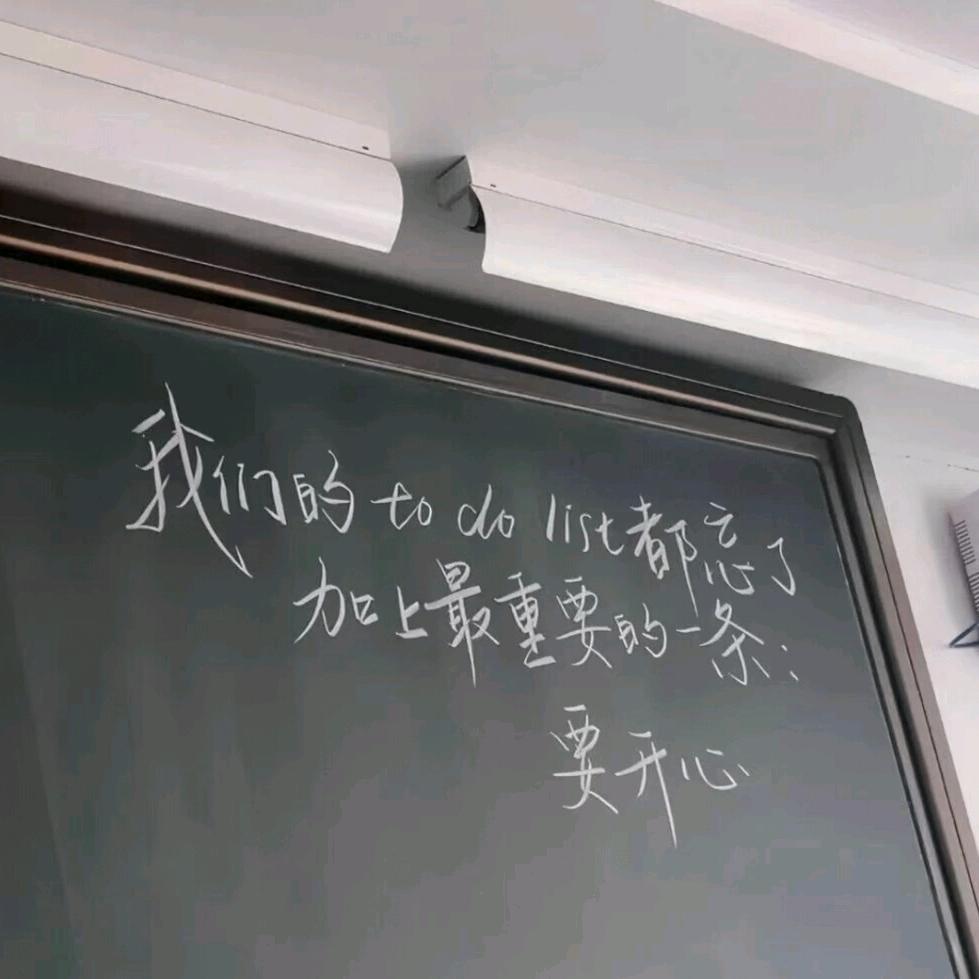 我们的 to do list 都忘了
加上最重要的一条:
要开心